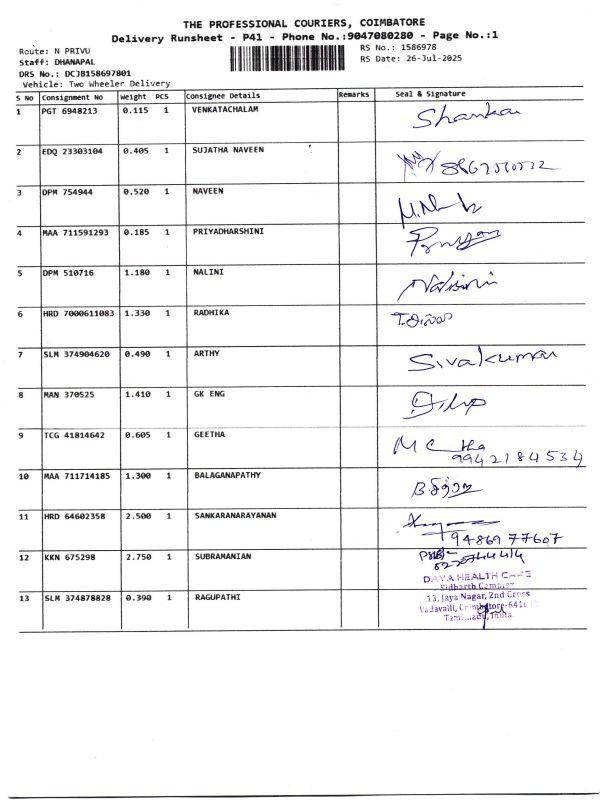 THE PROFESSIONAL COURIERS, COIMBATORE
Delivery Runsheet - P41 - Phone No.:9047080280 - Page No.:1
Route: N PRIVU RS No.: 1586978
Staff: DHANAPAL RS Date: 26-Jul-2025
DRS No.: DCJB158697801
Vehicle: Two Wheeler Delivery
S No Consignment No Weight PCS Consignee Details Remarks Seal & Signature
1 PGT 6948213 0.115 1 VENKATACHALAM Shankar
2 EDQ 23303104 0.405 1 SUJATHA NAVEEN
3 DPM 754944 0.520 1 NAVEEN
4 MAA 711591293 0.185 1 PRIYADHARSHINI
5 DPM 510716 1.180 1 NALINI Nalini
6 HRD 7000611083 1.330 1 RADHIKA
7 SLM 374904620 0.490 1 ARTHY Sivakumar
8 MAN 370525 1.410 1 GK ENG Dilip
9 TCG 41814642 0.605 1 GEETHA
9942184534
10 MAA 711714185 1.300 1 BALAGANAPATHY
11 HRD 64602358 2.500 1 SANKARANARAYANAN
9486977607
12 KKN 675298 2.750 1 SUBRAMANIAN
DAYA HEALTH CARE
Sidharth Complex
13 SLM 374878828 0.390 1 RAGUPATHI 13, Jaya Nagar, 2nd Cross
Vadavalli, Coimbatore-6410
Tamilnadu, India